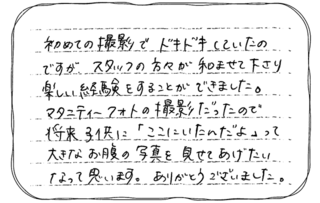 初めての撮影で ドキドキしていたの
ですが、スタッフの方々が 和ませて下さり
楽しい経験をすることができました。
マタニティーフォトの撮影だったので
将来子供に「ここにいたんだよ」って
大きなお腹の写真を 見せてあげたい
なって思います。ありがとうございました。